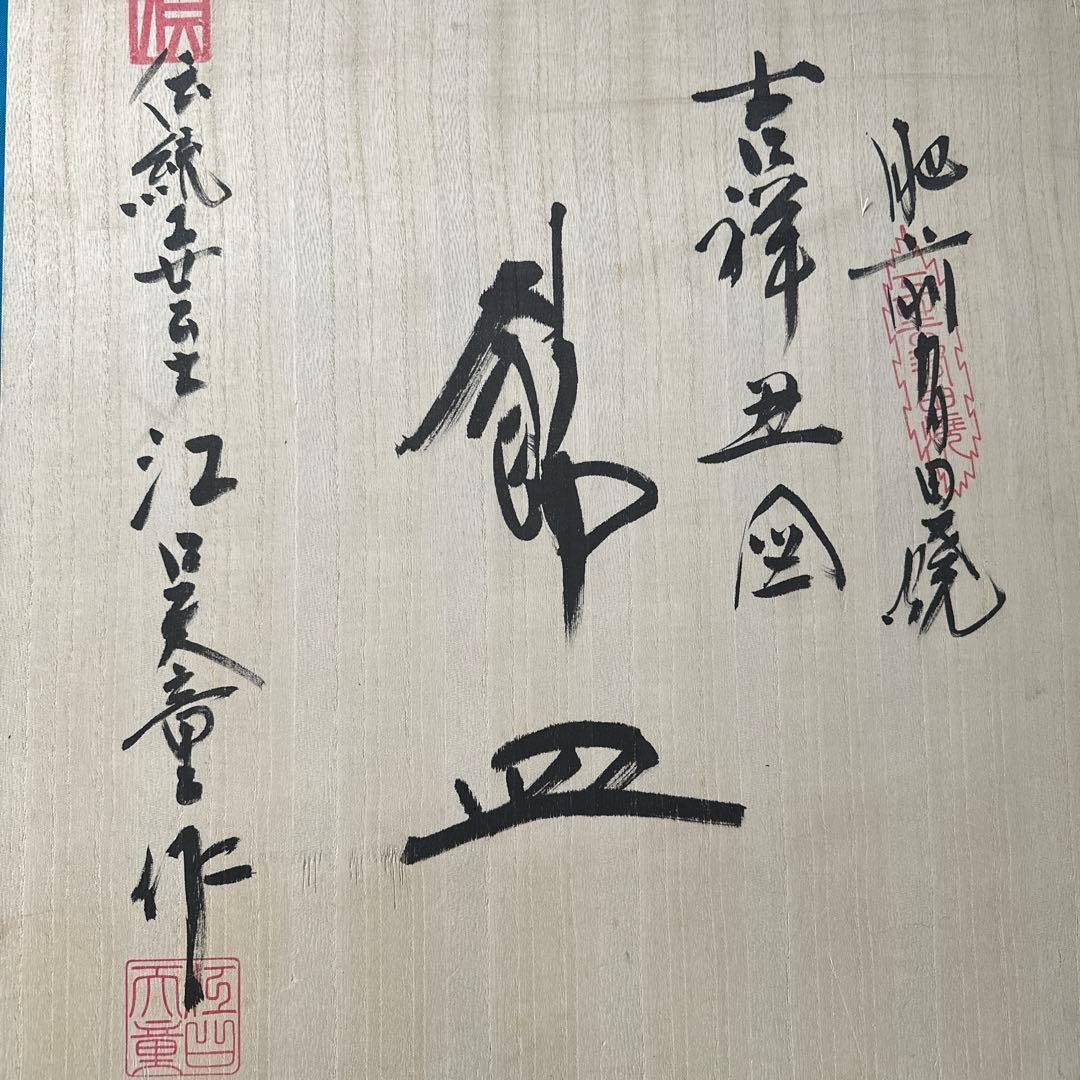 肥前有田焼
吉祥丑図
飾皿
伝統工芸士 江口天童作
江口天童